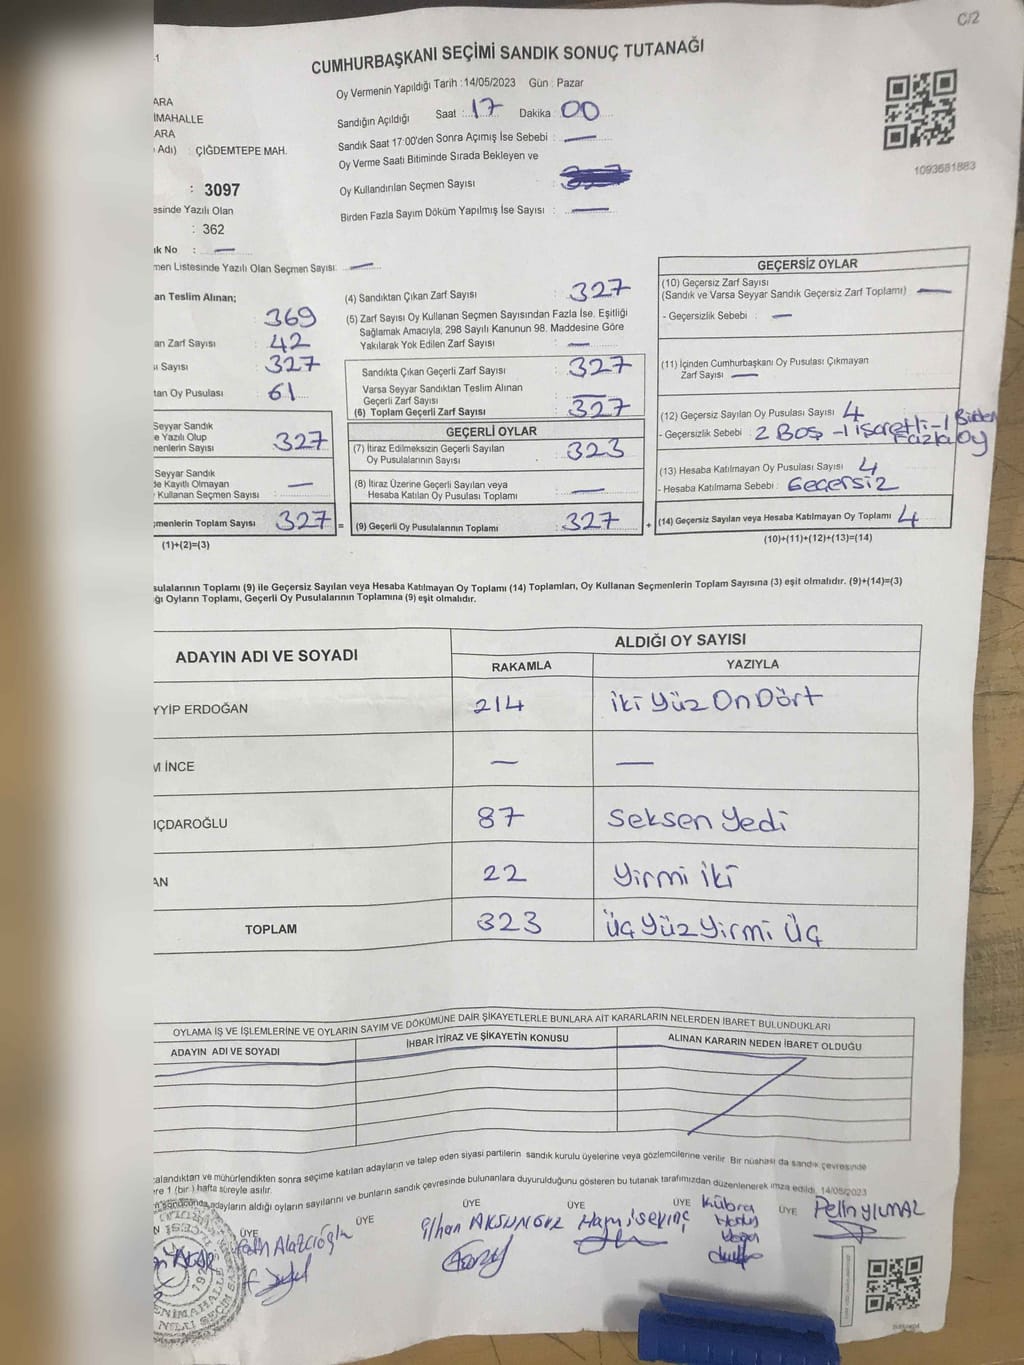 C/2
CUMHURBAŞKANI SEÇİMİ SANDIK SONUÇ TUTANAĞI
-1
ARA
İMAHALLE
ARA
Adı) : ÇİĞDEMTEPE MAH.
: 3097
esinde Yazılı Olan
: 362
ık No : —
men Listesinde Yazılı Olan Seçmen Sayısı: —
Oy Vermenin Yapıldığı Tarih : 14/05/2023 Gün : Pazar
Sandığın Açıldığı Saat : 17 Dakika : 00
Sandık Saat 17:00'den Sonra Açımış İse Sebebi : —
Oy Verme Saati Bitiminde Sırada Bekleyen ve
Oy Kullandırılan Seçmen Sayısı :
Birden Fazla Sayım Döküm Yapılmış İse Sayısı : —
1093681883
an Teslim Alınan;
369
an Zarf Sayısı 42
ı Sayısı 327
tan Oy Pusulası 61
Seyyar Sandık
e Yazılı Olup
menlerin Sayısı 327
Seyyar Sandık
de Kayıtlı Olmayan
Kullanan Seçmen Sayısı : —
çmenlerin Toplam Sayısı 327 =
(1)+(2)=(3)
(4) Sandıktan Çıkan Zarf Sayısı : 327
(5) Zarf Sayısı Oy Kullanan Seçmen Sayısından Fazla İse. Eşitliği
Sağlamak Amacıyla, 298 Sayılı Kanunun 98. Maddesine Göre
Yakılarak Yok Edilen Zarf Sayısı : —
Sandıkta Çıkan Geçerli Zarf Sayısı : 327
Varsa Seyyar Sandıktan Teslim Alınan
Geçerli Zarf Sayısı : —
(6) Toplam Geçerli Zarf Sayısı : 327
GEÇERLİ OYLAR
(7) İtiraz Edilmeksizin Geçerli Sayılan
Oy Pusulalarının Sayısı : 323
(8) İtiraz Üzerine Geçerli Sayılan veya
Hesaba Katılan Oy Pusulası Toplamı : —
(9) Geçerli Oy Pusulalarının Toplamı : 327 +
GEÇERSİZ OYLAR
(10) Geçersiz Zarf Sayısı
(Sandık ve Varsa Seyyar Sandık Geçersiz Zarf Toplamı) : —
- Geçersizlik Sebebi : —
(11) İçinden Cumhurbaşkanı Oy Pusulası Çıkmayan
Zarf Sayısı : —
(12) Geçersiz Sayılan Oy Pusulası Sayısı : 4
- Geçersizlik Sebebi : 2 Boş -1 işaretli-1 Birden
Fazla Oy
(13) Hesaba Katılmayan Oy Pusulası Sayısı : 4
- Hesaba Katılmama Sebebi : Geçersiz
(14) Geçersiz Sayılan veya Hesaba Katılmayan Oy Toplamı 4
(10)+(11)+(12)+(13)=(14)
sulalarının Toplamı (9) ile Geçersiz Sayılan veya Hesaba Katılmayan Oy Toplamı (14) Toplamları, Oy Kullanan Seçmenlerin Toplam Sayısına (3) eşit olmalıdır. (9)+(14)=(3)
ğı Oyların Toplamı, Geçerli Oy Pusulalarının Toplamına (9) eşit olmalıdır.
ADAYIN ADI VE SOYADI ALDIĞI OY SAYISI
RAKAMLA YAZIYLA
YYİP ERDOĞAN 214 iki Yüz On Dört
M İNCE — —
IÇDAROĞLU 87 Seksen Yedi
AN 22 Yirmi iki
TOPLAM 323 Üç Yüz Yirmi Üç
OYLAMA İŞ VE İŞLEMLERİNE VE OYLARIN SAYIM VE DÖKÜMÜNE DAİR ŞİKAYETLERLE BUNLARA AİT KARARLARIN NELERDEN İBARET BULUNDUKLARI
ADAYIN ADI VE SOYADI İHBAR İTİRAZ VE ŞİKAYETİN KONUSU ALINAN KARARIN NEDEN İBARET OLDUĞU
alandıktan ve mühürlendikten sonra seçime katılan adayların ve talep eden siyasi partilerin sandık kurulu üyelerine veya gözlemcilerine verilir. Bir nüshası da sandık çevresinde
re 1 (bir) hafta süreyle asılır.
adayların aldığı oyların sayılarını ve bunların sandık çevresinde bulunanlara duyurulduğunu gösteren bu tutanak tarafımızdan düzenlenerek imza edildi. 14/05/2023
ÜYE ÜYE ÜYE ÜYE ÜYE ÜYE
Fatih Alazcıoğlu İlhan AKSUNGUR Kübra Pelin YILMAZ